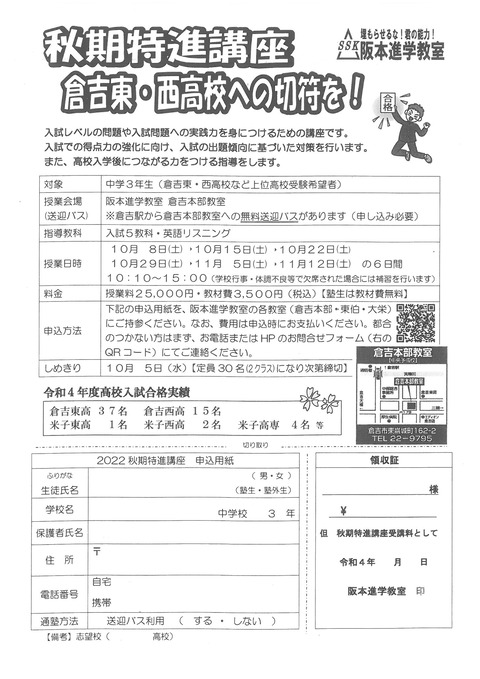 秋期特進講座
倉吉東・西高校への切符を!
SSK
眠もらせるな!君の能力!
阪本進学教室
合格
入試レベルの問題や入試問題への実践力を身につけるための講座です。
入試での得点力の強化に向け、入試の出題傾向に基づいた対策を行います。
また、高校入学後につながる力をつける指導をします。
対象 中学3年生(倉吉東・西高校など上位高校受験希望者)
授業会場 阪本進学教室 倉吉本部教室
(送迎バス) ※倉吉駅から倉吉本部教室への無料送迎バスがあります(申し込み必要)
指導教科 入試5教科・英語リスニング
授業日時
10月 8日(土)→10月15日(土)→10月22日(土)
10月29日(土)→11月 5日(土)→11月12日(土) の6日間
10:10~15:00(学校行事・体調不良等で欠席された場合には補習を行います)
料金 授業料25,000円・教材費3,500円(税込)【塾生は教材費無料】
申込方法
下記の申込用紙を、阪本進学教室の各教室(倉吉本部・東伯・大栄)
にご持参ください。なお、費用は申込時にお支払いください。都合
のつかない方はまず、お電話またはHPのお問合せフォーム(右の
QRコード)にてご連絡ください。
しめきり 10月 5日(水)【定員30名(2クラス)になり次第締切】
倉吉本部教室
倉吉市東巌城町162-2
TEL 22-9795
令和4年度高校入試合格実績
倉吉東高 37名 倉吉西高 15名
米子東高 1名 米子西高 2名 米子高専 4名 等
切り取り
2022秋期特進講座 申込用紙
ふりがな (男・女)
生徒氏名 (塾生・塾外生)
学校名 中学校 3年
保護者氏名
住 所 〒
電話番号 自宅
携帯
通塾方法 送迎バス利用 ( する ・ しない )
【備考】志望校( 高校)
領収証
様
¥
但 秋期特進講座受講料として
令和4年 月 日
阪本進学教室 印